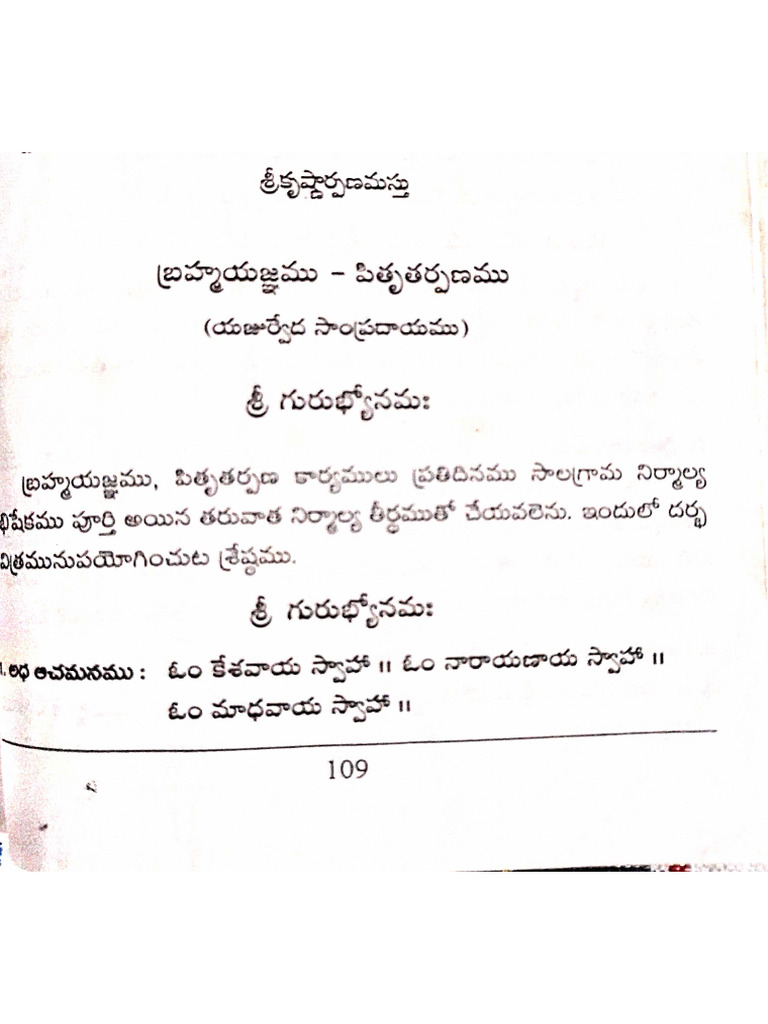 శ్రీకృష్ణార్పణమస్తు
బ్రహ్మయజ్ఞము - పితృతర్పణము
(యజుర్వేద సాంప్రదాయము)
శ్రీ గురుభ్యోనమః
బ్రహ్మయజ్ఞము, పితృతర్పణ కార్యములు ప్రతిదినము సాలగ్రామ నిర్మాల్య
భిషేకము పూర్తి అయిన తరువాత నిర్మాల్య తీర్థముతో చేయవలెను. ఇందులో దర్భ
విత్రమునుపయోగించుట శ్రేష్ఠము.
శ్రీ గురుభ్యోనమః
1. అధ ఆచమనము : ఓం కేశవాయ స్వాహా ॥ ఓం నారాయణాయ స్వాహా ॥
ఓం మాధవాయ స్వాహా ॥
109